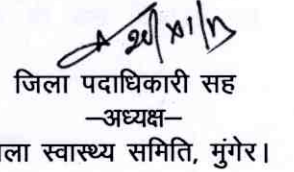 जिला पदाधिकारी सह
–अध्यक्ष–
ला स्वास्थ्य समिति, मुंगेर।